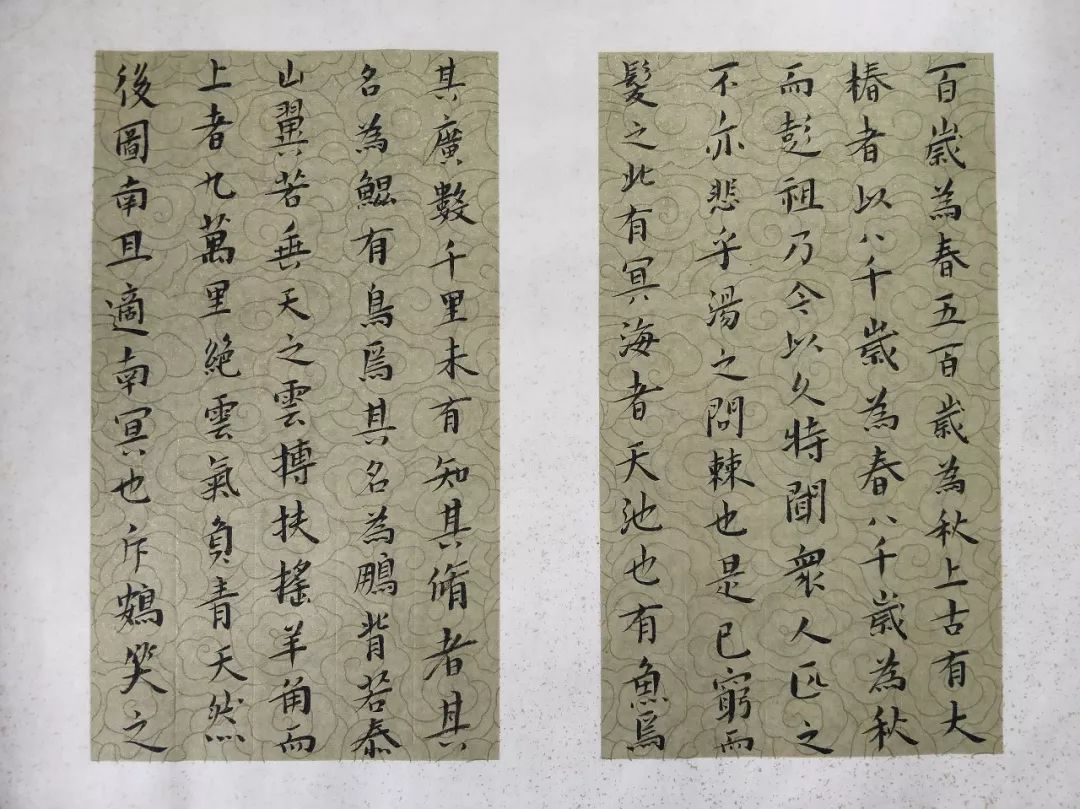 百歲為春五百歲為秋上古有大
椿者以八千歲為春八千歲為秋
而彭祖乃今以久特聞衆人匹之
不亦悲乎湯之問棘也是已窮而
髮之北有冥海者天池也有魚焉
其廣數千里未有知其脩者其
名為鯤有鳥焉其名為鵬背若泰
山翼若垂天之雲搏扶搖羊角而
上者九萬里絕雲氣負青天然
後圖南且適南冥也斥鴳笑之